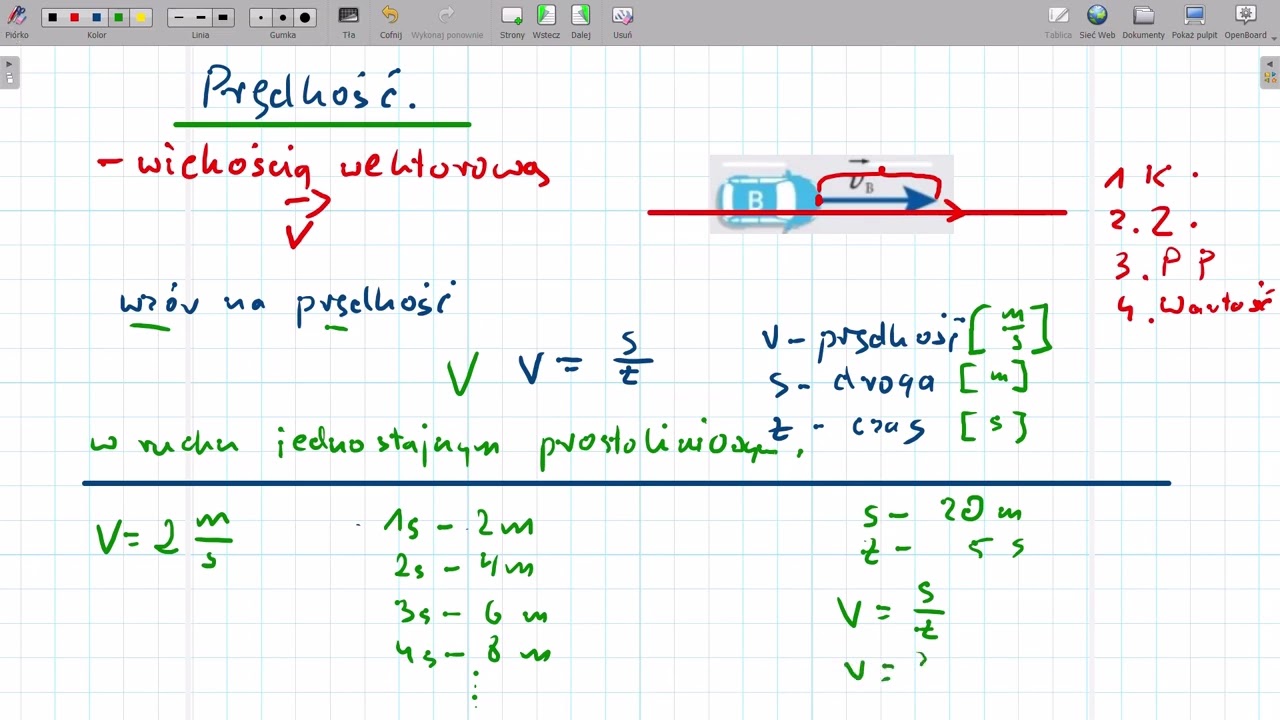 Piórko
Kolor
Linia
Gumka
Tła
Cofnij
Wykonaj ponownie
Strony
Wstecz
Dalej
Usuń
Tablica
Sieć Web
Dokumenty
Pokaż pulpit
OpenBoard
Prędkość.
- wielkością wektorową
V
B
v B
1 K.
2. Z.
3. P P
4. Wartość
wzór na prędkość
V V = s/t
v - prędkość [m/s]
s - droga [m]
t - czas [s]
w ruchu jednostajnym prostoliniowym.
V = 2 m/s
1s - 2m
2s - 4m
3s - 6 m
4s - 8 m
⋮
s - 20 m
t - 5 s
V = s/t
V =